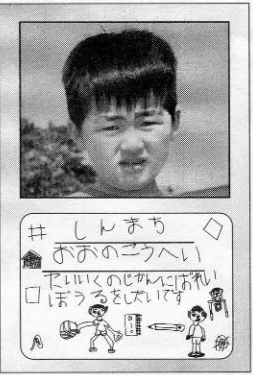 しんまち
おおのこうへい
たいいくのじかんにばれい
ぼうるをしたいです